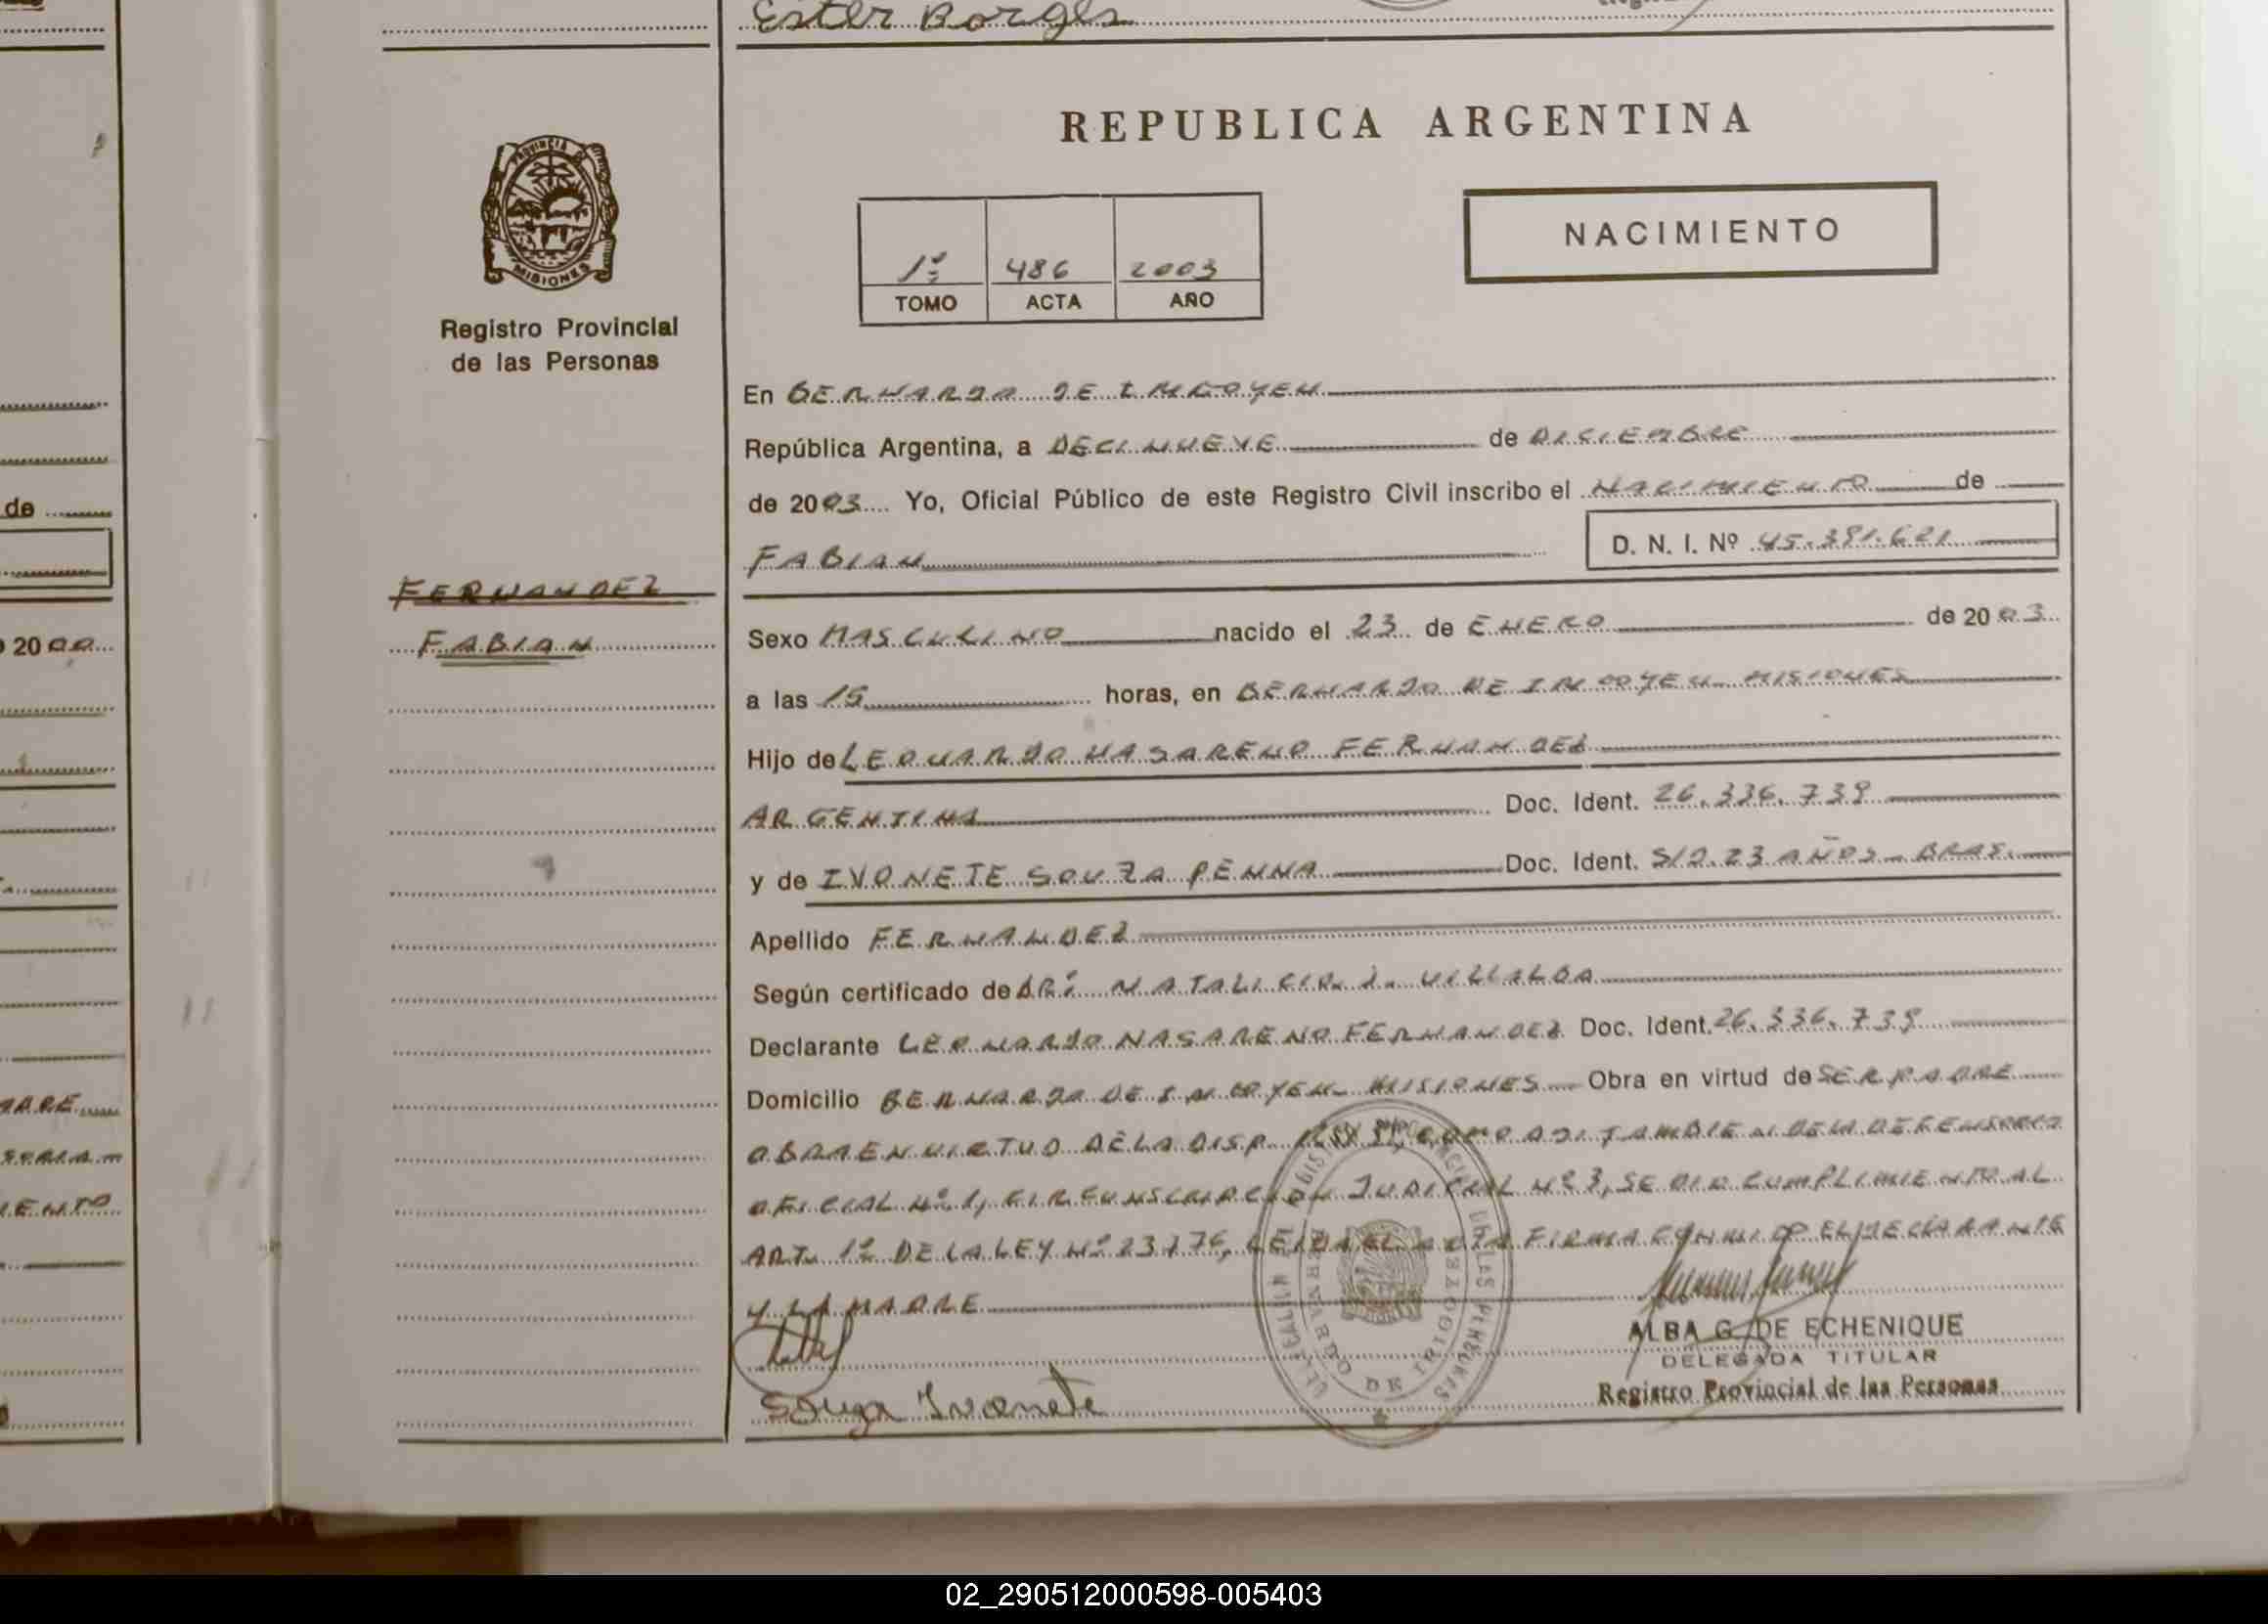 Ester Borges
REPUBLICA ARGENTINA
PROVINCIA DE
MISIONES
Registro Provincial
de las Personas
NACIMIENTO
1º 486 2003
TOMO ACTA AÑO
En BERNARDO DE IRIGOYEN
República Argentina, a DECINUEVE de DICIEMBRE
de 2003 Yo, Oficial Público de este Registro Civil inscribo el NACIMIENTO de
FABIAN D. N. I. Nº 45.391.621
FERNANDEZ
FABIAN
Sexo MASCULINO nacido el 23 de ENERO de 2003
a las 15 horas, en BERNARDO DE IRIGOYEN - MISIONES
Hijo de LEONARDO NASARENO FERNANDEZ
ARGENTINA Doc. Ident. 26.336.739
y de IVONETE SOUZA PENNA Doc. Ident. S/D. 23 AÑOS - BRAS.
Apellido FERNANDEZ
Según certificado de DRA. NATALICIA J. VILLALBA
Declarante LEONARDO NASARENO FERNANDEZ Doc. Ident. 26.336.739
Domicilio BERNARDO DE IRIGOYEN - MISIONES Obra en virtud de SER PADRE
OBRA EN VIRTUD DE LA DISP. COMO ASI TAMBIEN DE LA DEFENSORIA
OFICIAL Nº 1, CIRCUNSCRIPCION JUDICIAL Nº 3, SE DIO CUMPLIMIENTO AL
ART. 1º DE LA LEY Nº 23776, LEIDA EL ACTA FIRMA CONMIGO EL DECLARANTE
Y LA MADRE
ALBA G. DE ECHENIQUE
DELEGADA TITULAR
Souza Ivonete
Registro Provincial de las Personas
BERNARDO DE IRIGOYEN
de
2000
02_290512000598-005403